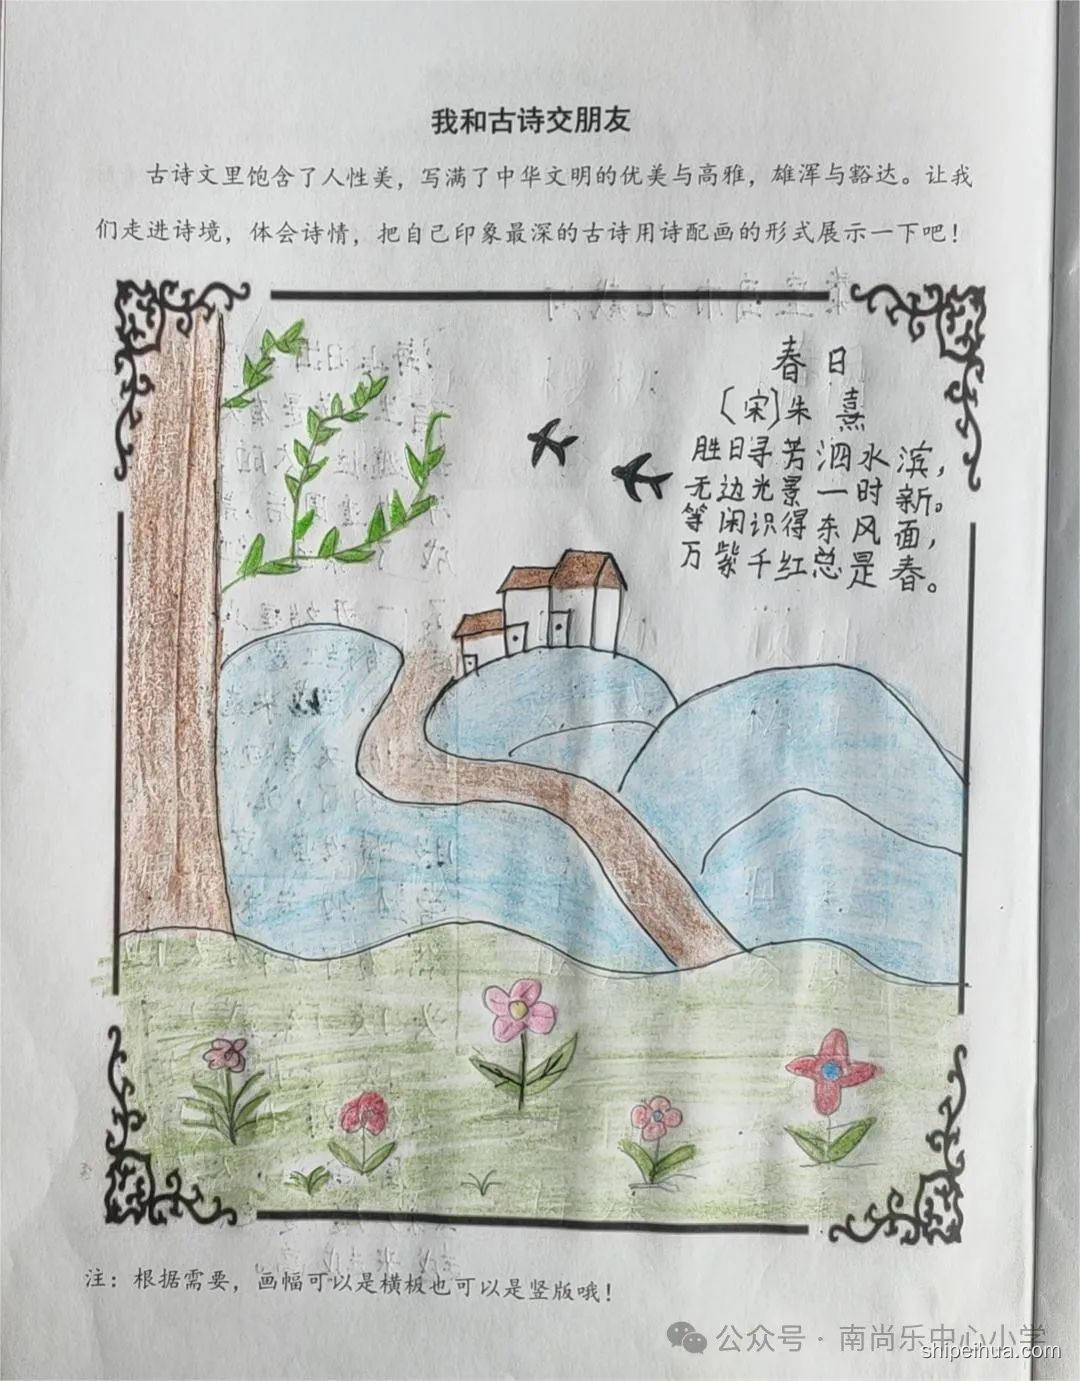 我和古诗交朋友
古诗文里饱含了人性美，写满了中华文明的优美与高雅，雄浑与豁达。让我
们走进诗境，体会诗情，把自己印象最深的古诗用诗配画的形式展示一下吧！
春日
〔宋〕朱熹
胜日寻芳泗水滨，
无边光景一时新。
等闲识得东风面，
万紫千红总是春。
注：根据需要，画幅可以是横板也可以是竖版哦！
公众号·南尚乐中心小学
shipeihua.com